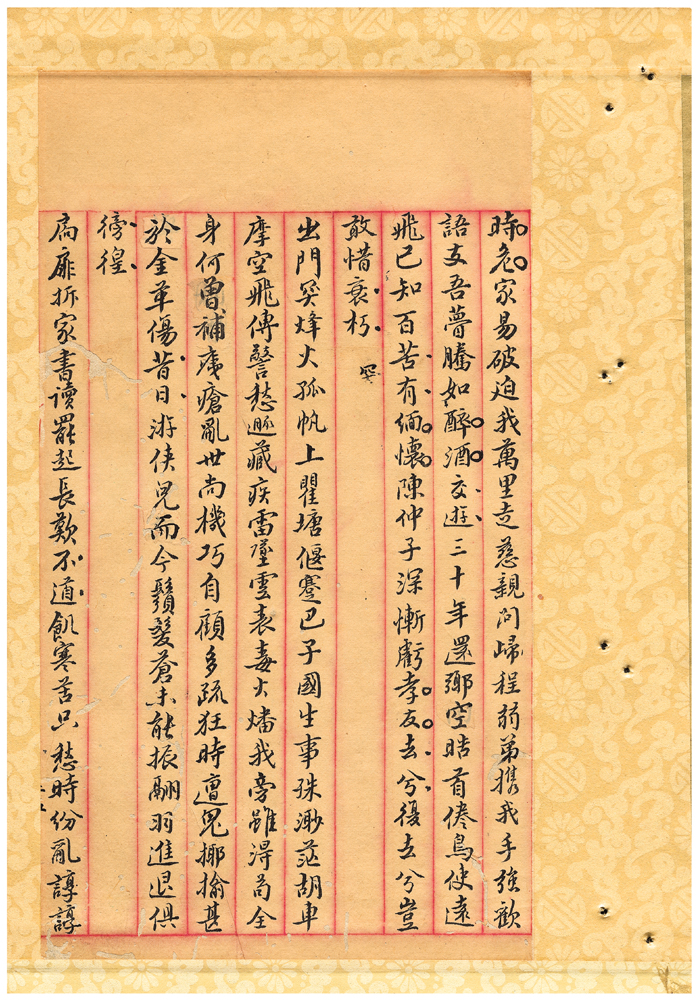 時危家易破迫我萬里走慈親問歸程弱弟攜我手強歡
語支吾瞢騰如醉酒交遊三十年還鄉空皓首倦鳥使遠
飛已知百苦有緬懷陳仲子深慚虧孝友去兮復去兮豈
敢惜衰朽
出門冥烽火孤帆上瞿塘偃蹇巴子國生事殊渺茫胡車
摩空飛傳警愁遯藏疾雷墜雲表毒火燔我旁雖淂苟全
身何曾補痍瘡亂世尚機巧自顧多疏狂時遭鬼揶揄甚
於金革傷昔日游俠兒而今鬚髮蒼未能振翮羽進退俱
徬徨
扃扉拆家書讀罷起長歎不道飢寒苦只愁時份亂諄諄